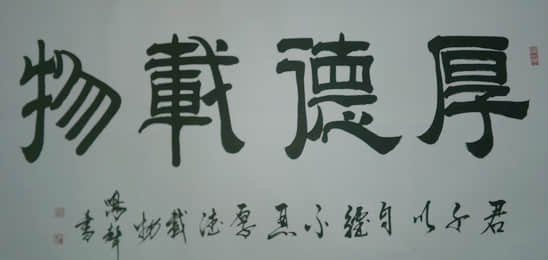 厚德載物
君子以自强不息厚德載物
書